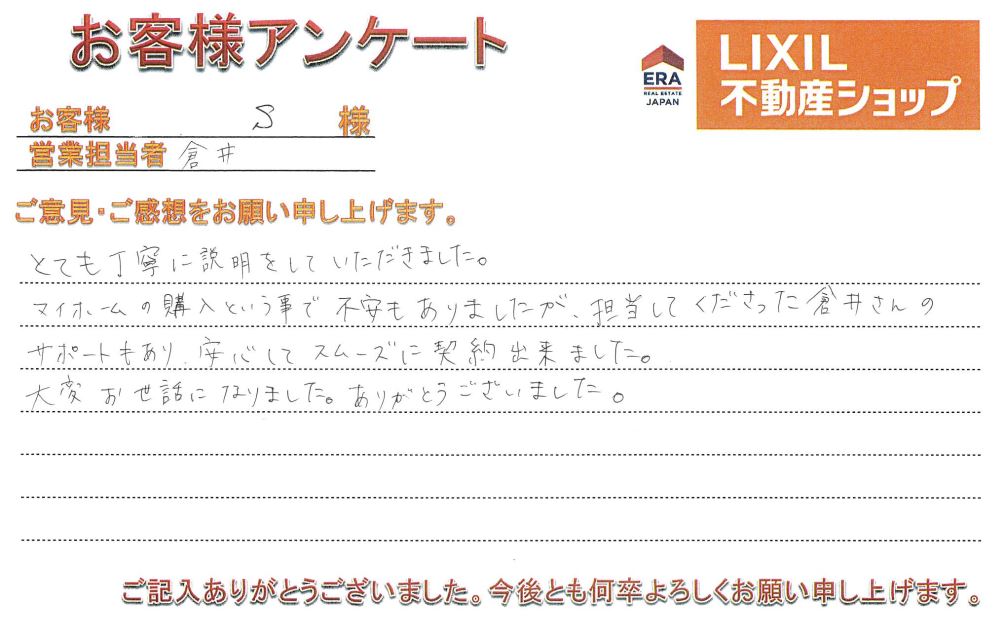 お客様アンケート
ERA
REAL ESTATE
JAPAN
LIXIL
不動産ショップ
お客様 S 様
営業担当者 倉井
ご意見・ご感想をお願い申し上げます。
とても丁寧に説明をしていただきました。
マイホームの購入という事で不安もありましたが、担当してくださった倉井さんの
サポートもあり、安心してスムーズに契約出来ました。
大変お世話になりました。ありがとうございました。
ご記入ありがとうございました。今後とも何卒よろしくお願い申し上げます。